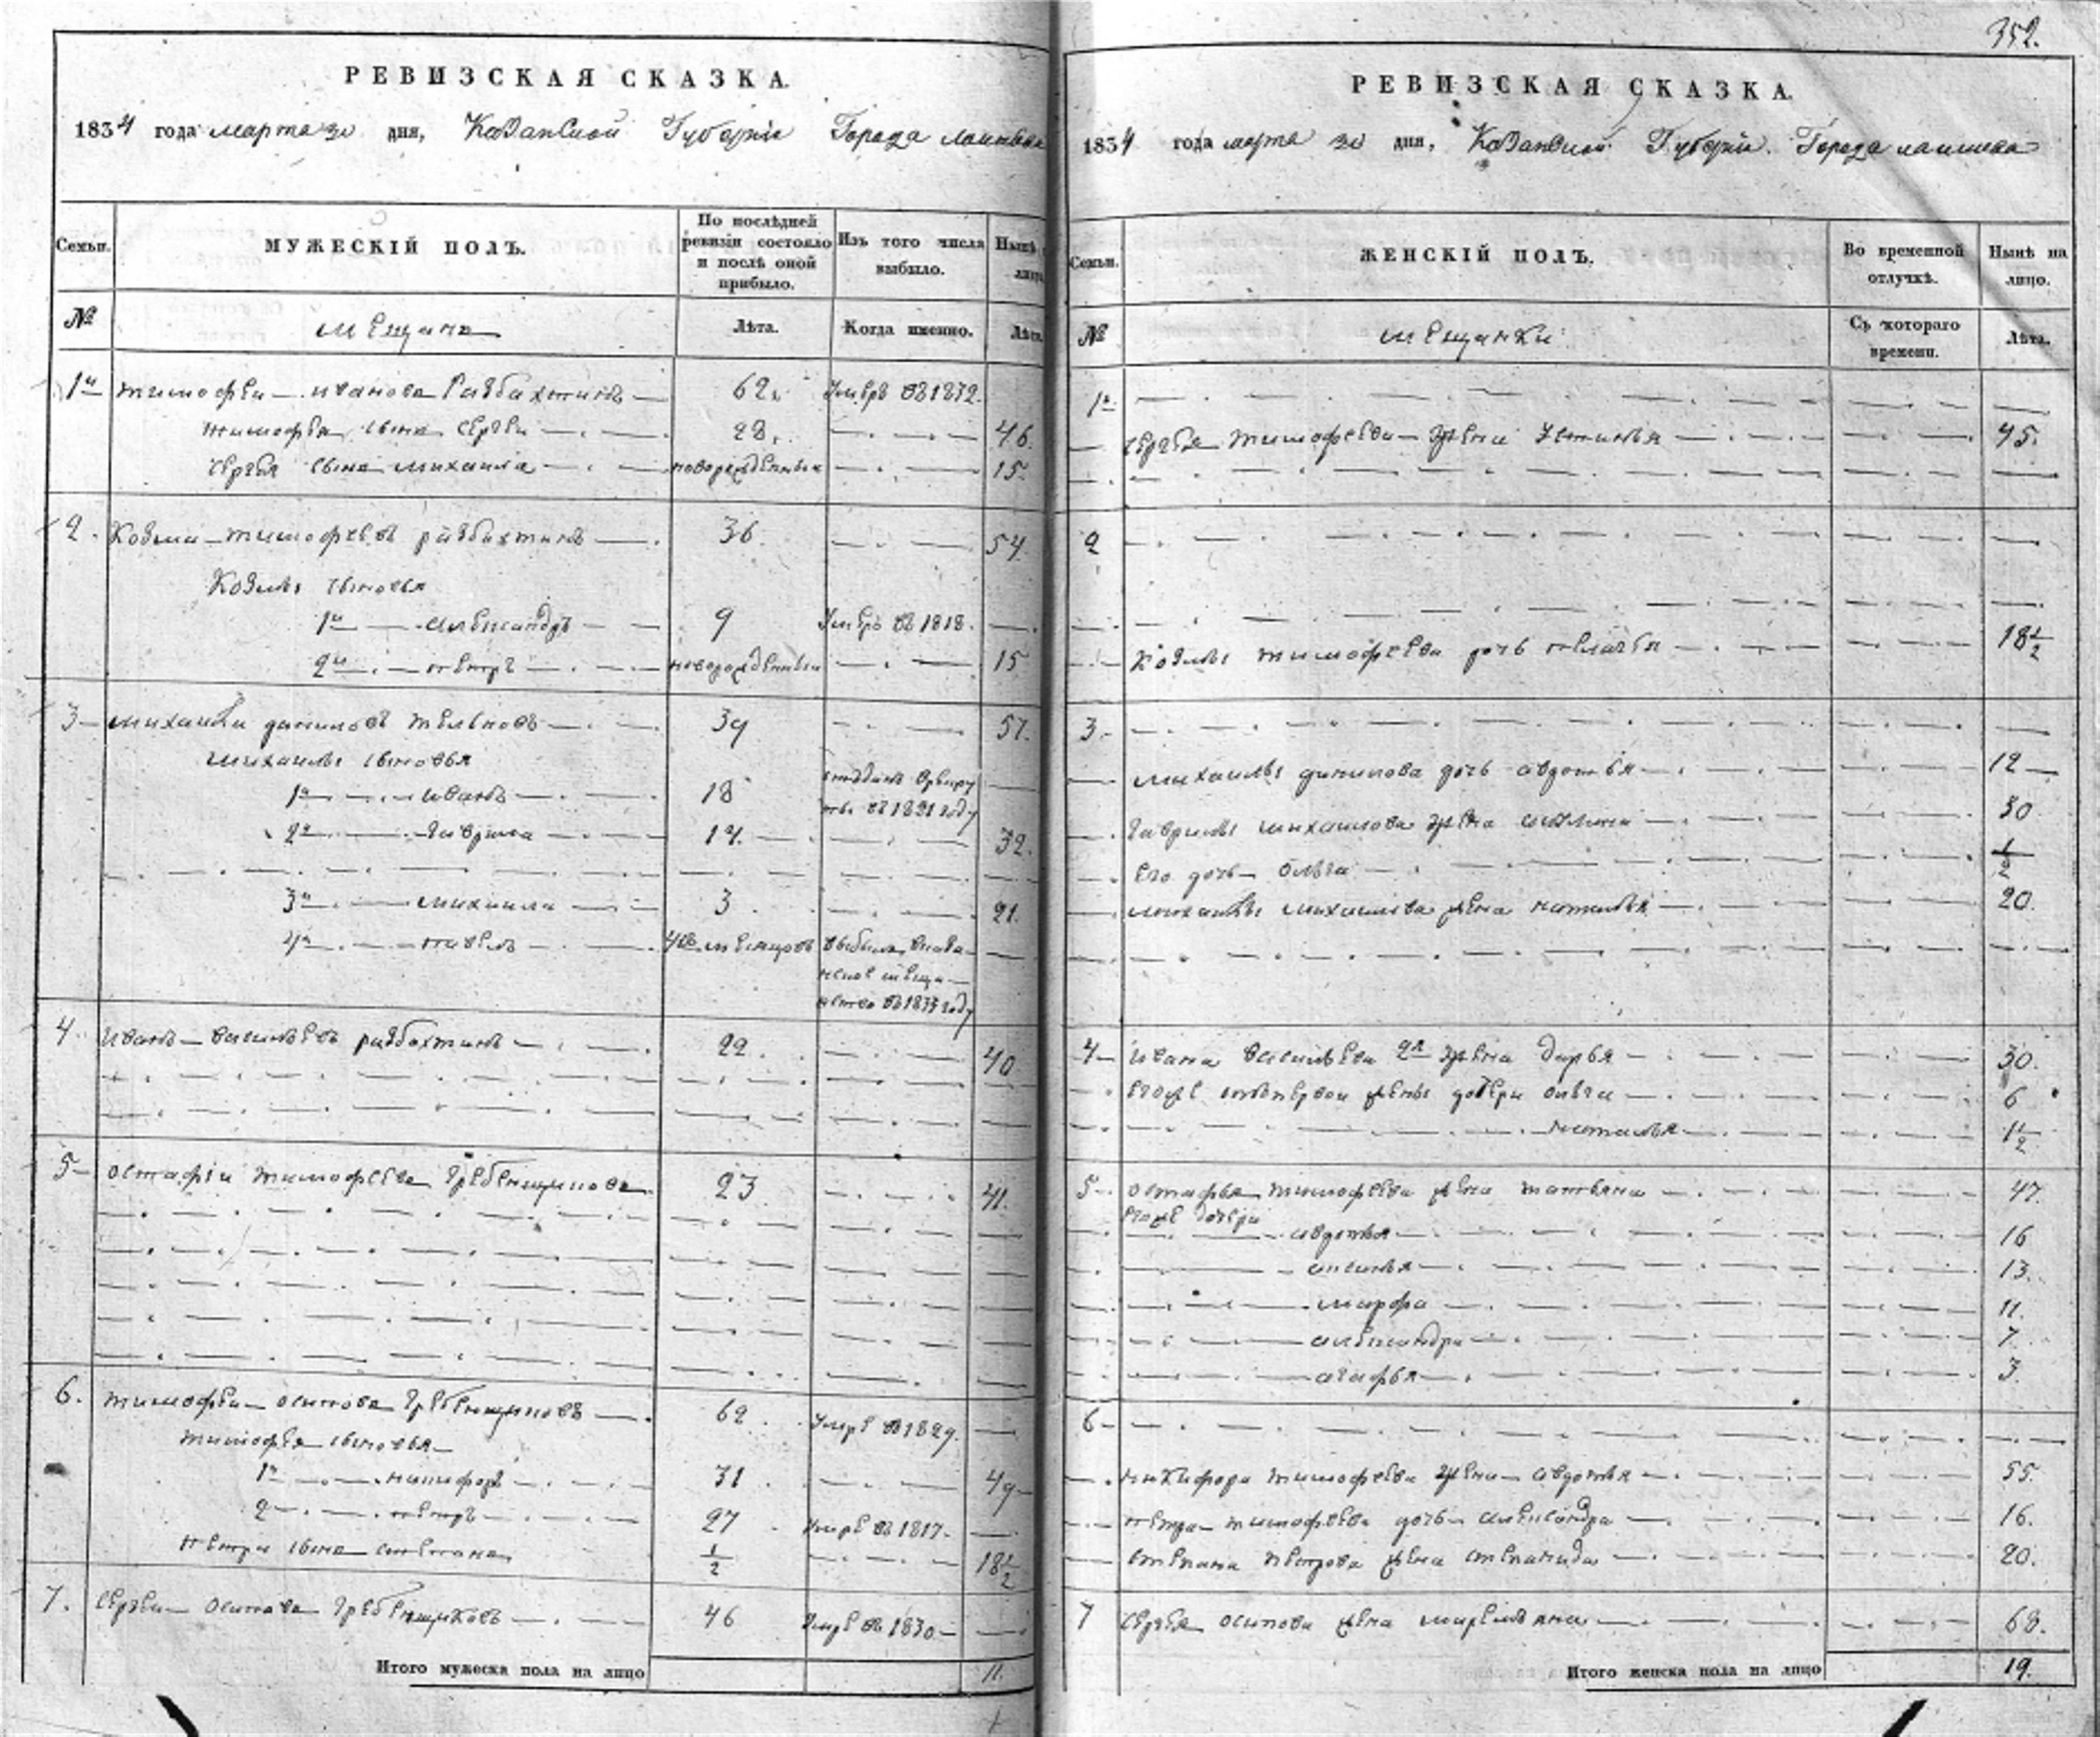 352.
РЕВИЗСКАЯ СКАЗКА.
1834 года марта 30 дня, Казанской Губернiи Города Лаишева
Семьи.
МУЖЕСКIЙ ПОЛЪ.
По послѣдней ревизiи состояло и послѣ оной прибыло.
Изъ того числа выбыло.
Нынѣ на лицо
№
Мещане
Лѣта.
Когда именно.
Лѣта
1й Тимофей Иванов 62 Умеръ въ 1832.
Тимофея сынъ Сергей 28 46.
Сергея сынъ Михаила новорожденный 15.
2. Козма Тимофеевъ 36. 54.
Козмы сыновья
1й Александръ 9 Умеръ въ 1818.
2й Петръ новорожденный 15
3 Михайла Даниловъ 39 57.
Михайлы сыновья
1й Иванъ 18 отданъ в рекру
ты въ 1821 году
2й Гаврила 14. 32.
3й Михайла 3 21.
4й Павелъ месяцовъ выбылъ в каза
нское меща
нство въ 1833 году
4. Иванъ Васильевъ 22. 40
5 Остафiй Тимофеевъ Гребенщиковъ 23 41.
6. Тимофей Осиповъ Гребенщиковъ 62 Умре въ 1829.
Тимофея сыновья
1й Никифоръ 31 49
2 Петръ 27 Умре въ 1817.
Петра сынъ Степанъ 1/2 18 1/2
7. Сергей Осиповъ Гребенщиковъ 46 Умре въ 1830
Итого мужеска пола на лицо 11.
РЕВИЗСКАЯ СКАЗКА.
1834 года марта 30 дня, Казанской Губернiи. Города Лаишева
Семьи.
ЖЕНСКIЙ ПОЛЪ.
Во временной отлучкѣ.
Нынѣ на лицо.
№
Мещанки
Съ котораго времени.
Лѣта.
1й
Сергея Тимофеева жена Устинья 45.
2
Козмы Тимофеева дочь Пелагея 18 1/2
3.
Михайлы Данилова дочь Авдотья 12
Гаврилы Михайлова жена 30
Его дочь Ольга 1/2
Михайлы Михайлова жена Наталья 20.
4 Ивана Васильева 2я жена Дарья 30.
Его же от первой жены дочери Ольга 6
Наталья 1 1/2
5 Остафья Тимофеева жена Татьяна 47.
Его же дочери
Авдотья 16
Аксинья 13.
Марфа 11.
Александра 7
Агафья 3.
6
Никифора Тимофеева жена Авдотья 55.
Петра Тимофеева дочь Александра 16.
Степана Петрова жена Степанида 20.
7 Сергея Осипова жена Маремьяна 68.
Итого женска пола на лицо 19.